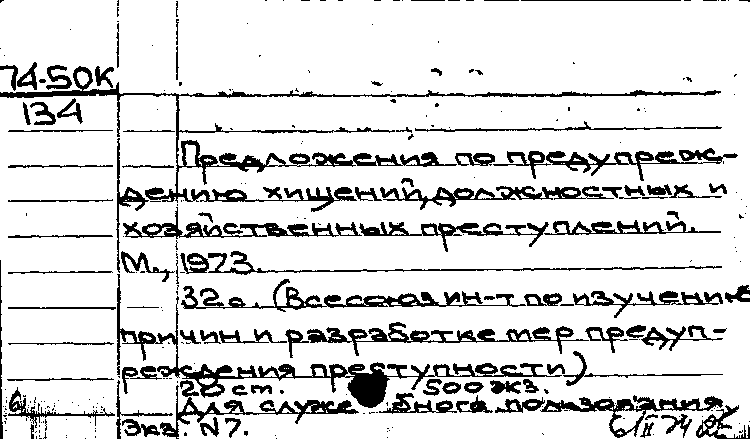 74-50К
134
Предложения по предупреж-
дению хищений, должностных и
хозяйственных преступлений.
М., 1973.
32с. (Всесоюзн ин-т по изучению
причин и разработке мер предуп-
реждения преступности)
20 см. 500 экз.
Для служебного пользования
Экз. N7.